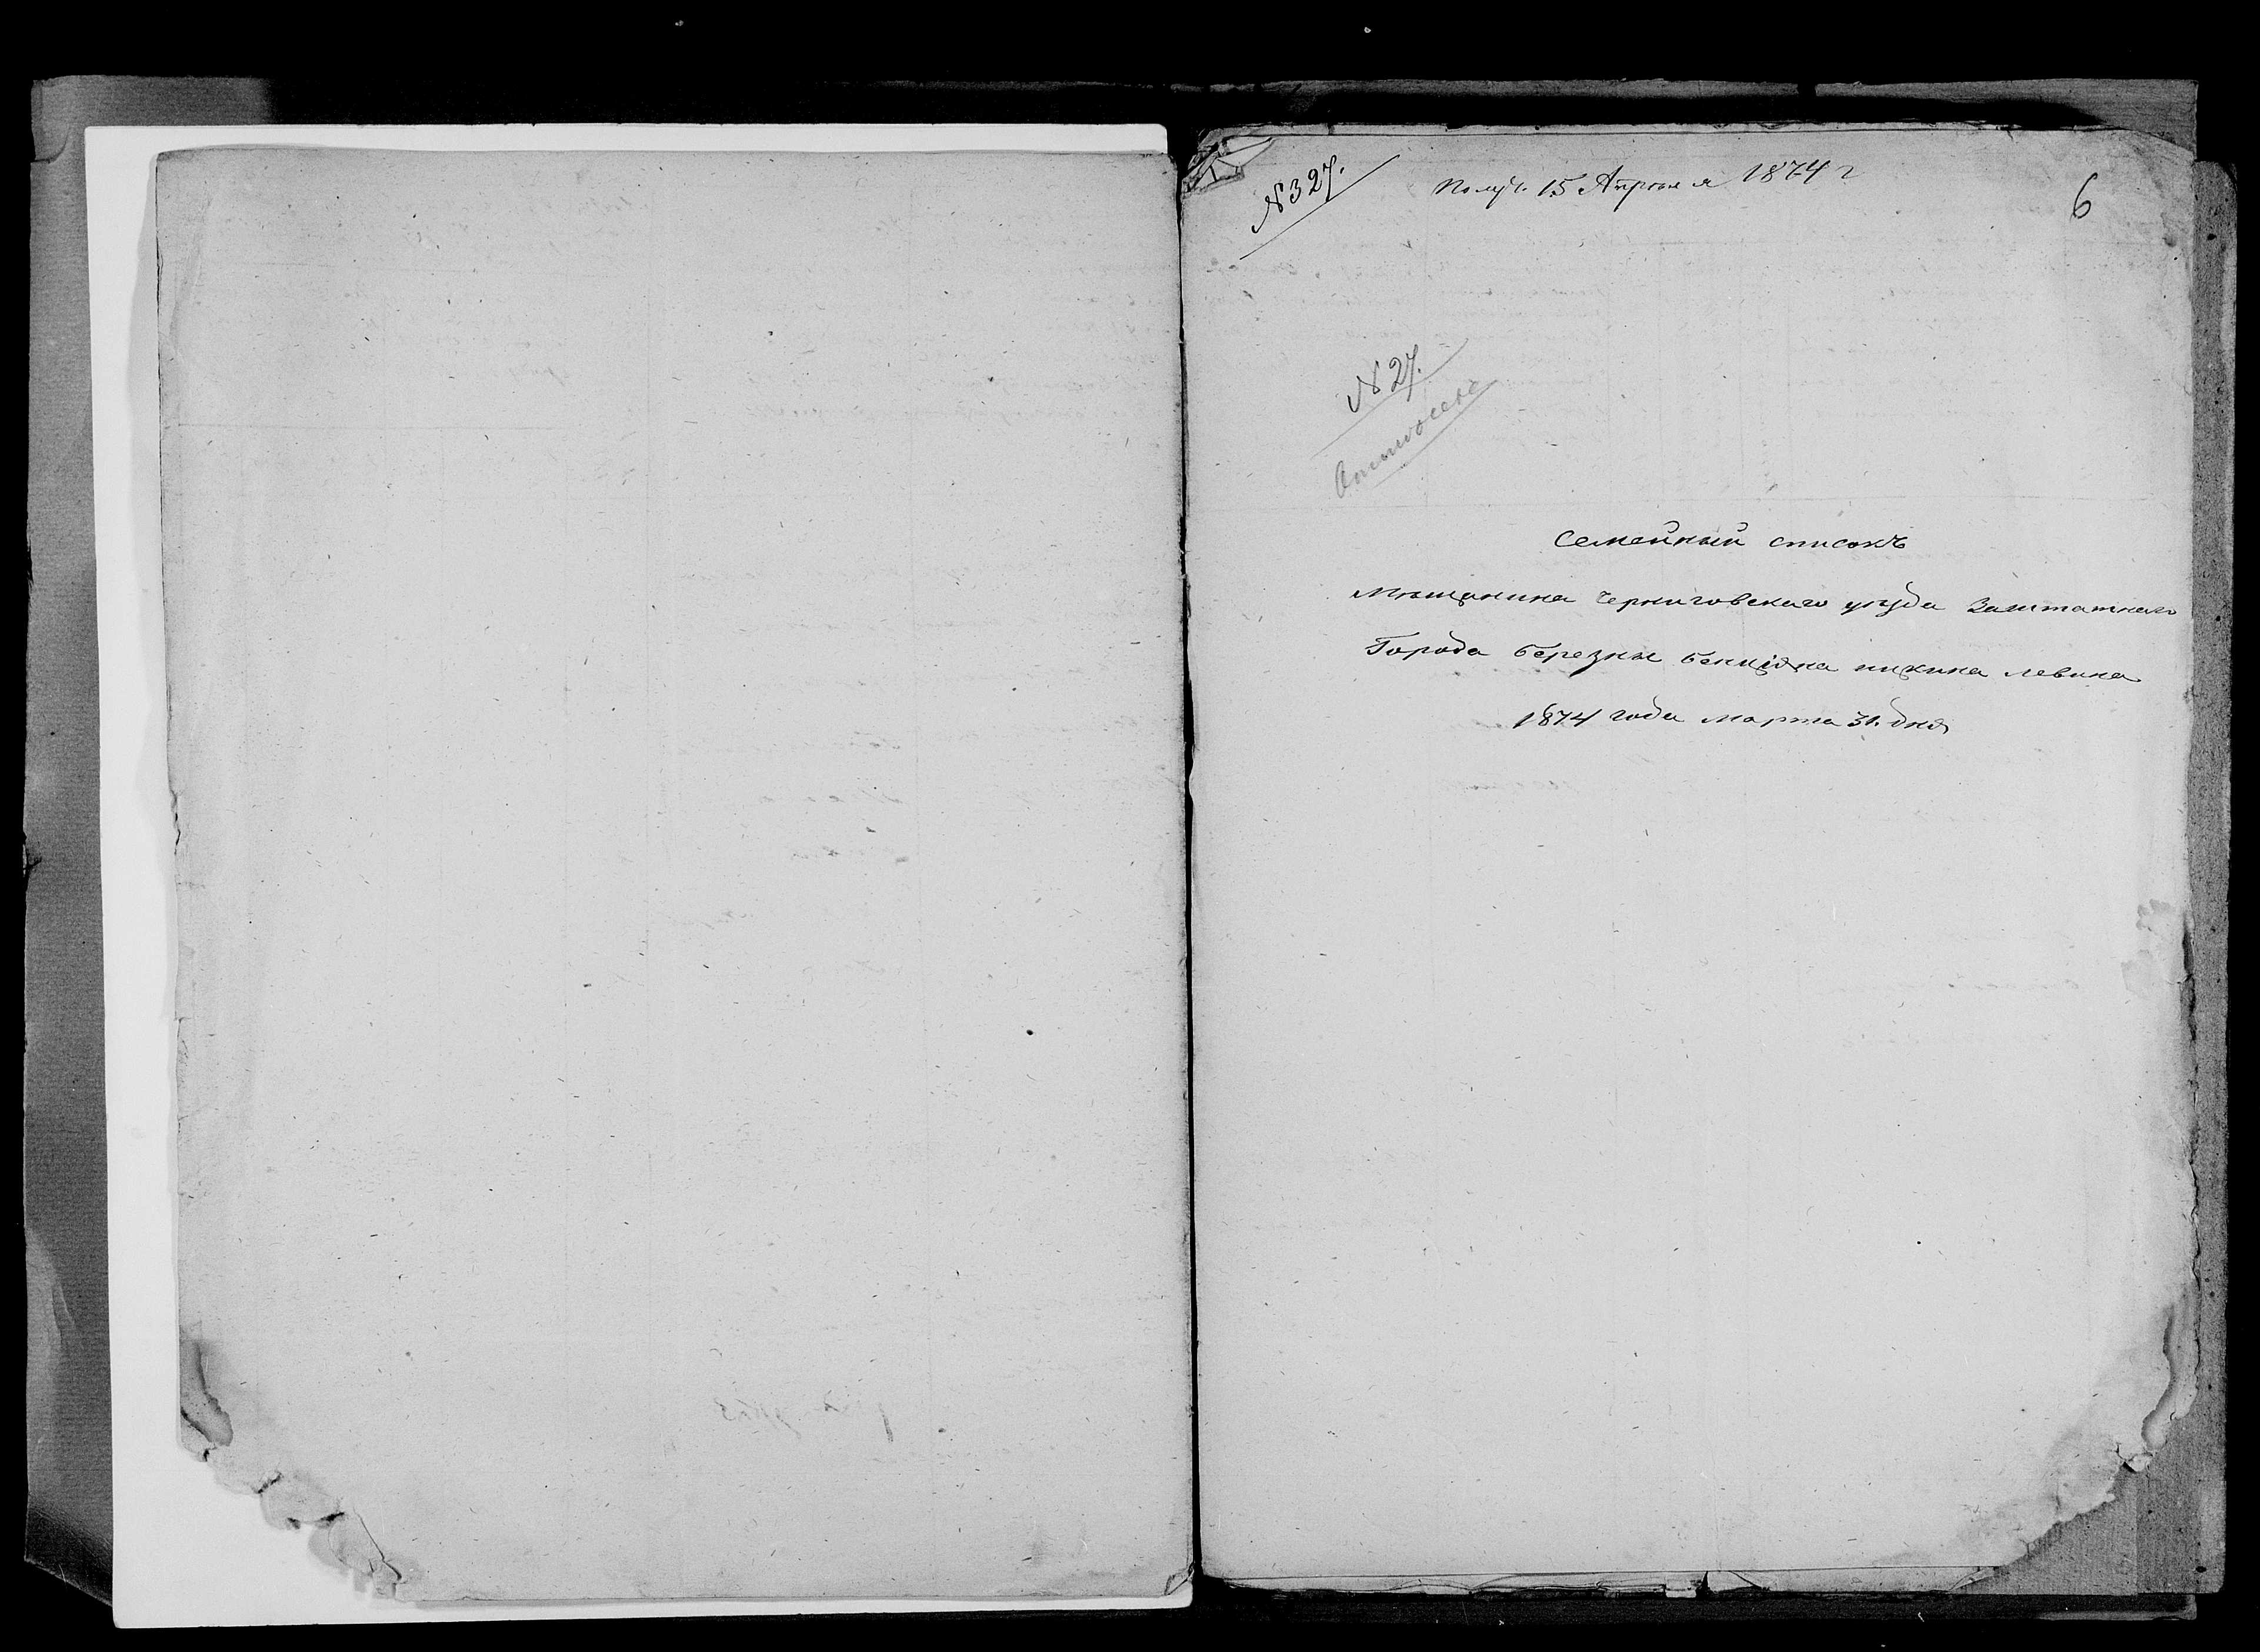 № 327.
Получ. 15 Апреля 1874 г
6
№ 27.
Семейный списокъ
Мѣщанина Черниговскаго уѣзда Заштатнаго
Города Березны Бенціона Ицкина Левина
1874 года Марта 31. дня